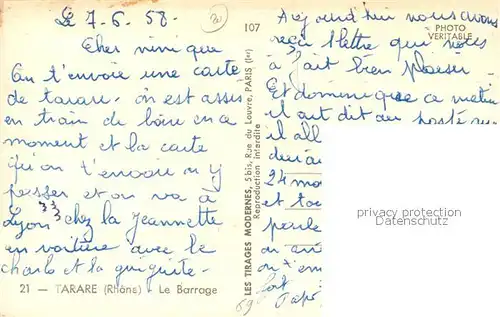 Le 7-6-58-
20
107
Cher
On t'envoie une carte
de tarare. on est assis
en train de boire en ce
moment et la carte
qu'on t'envoie on y
passer et on va à
Lyon chez la Jeannette
en voiture avec le
charlot et la
21 — TARARE (Rhône) - Le Barrage
LES TIRAGES MODERNES, 5 bis, Rue du Louvre, PARIS (Ier)
Reproduction interdite
PHOTO
VERITABLE
Aujourd'hui nous avons
reçu lettre qui nous
à fait bien plaiser
Et dominique ce matin
il
il all
24
et
69
privacy protection
Datenschutz
on t'em
fort
Papé